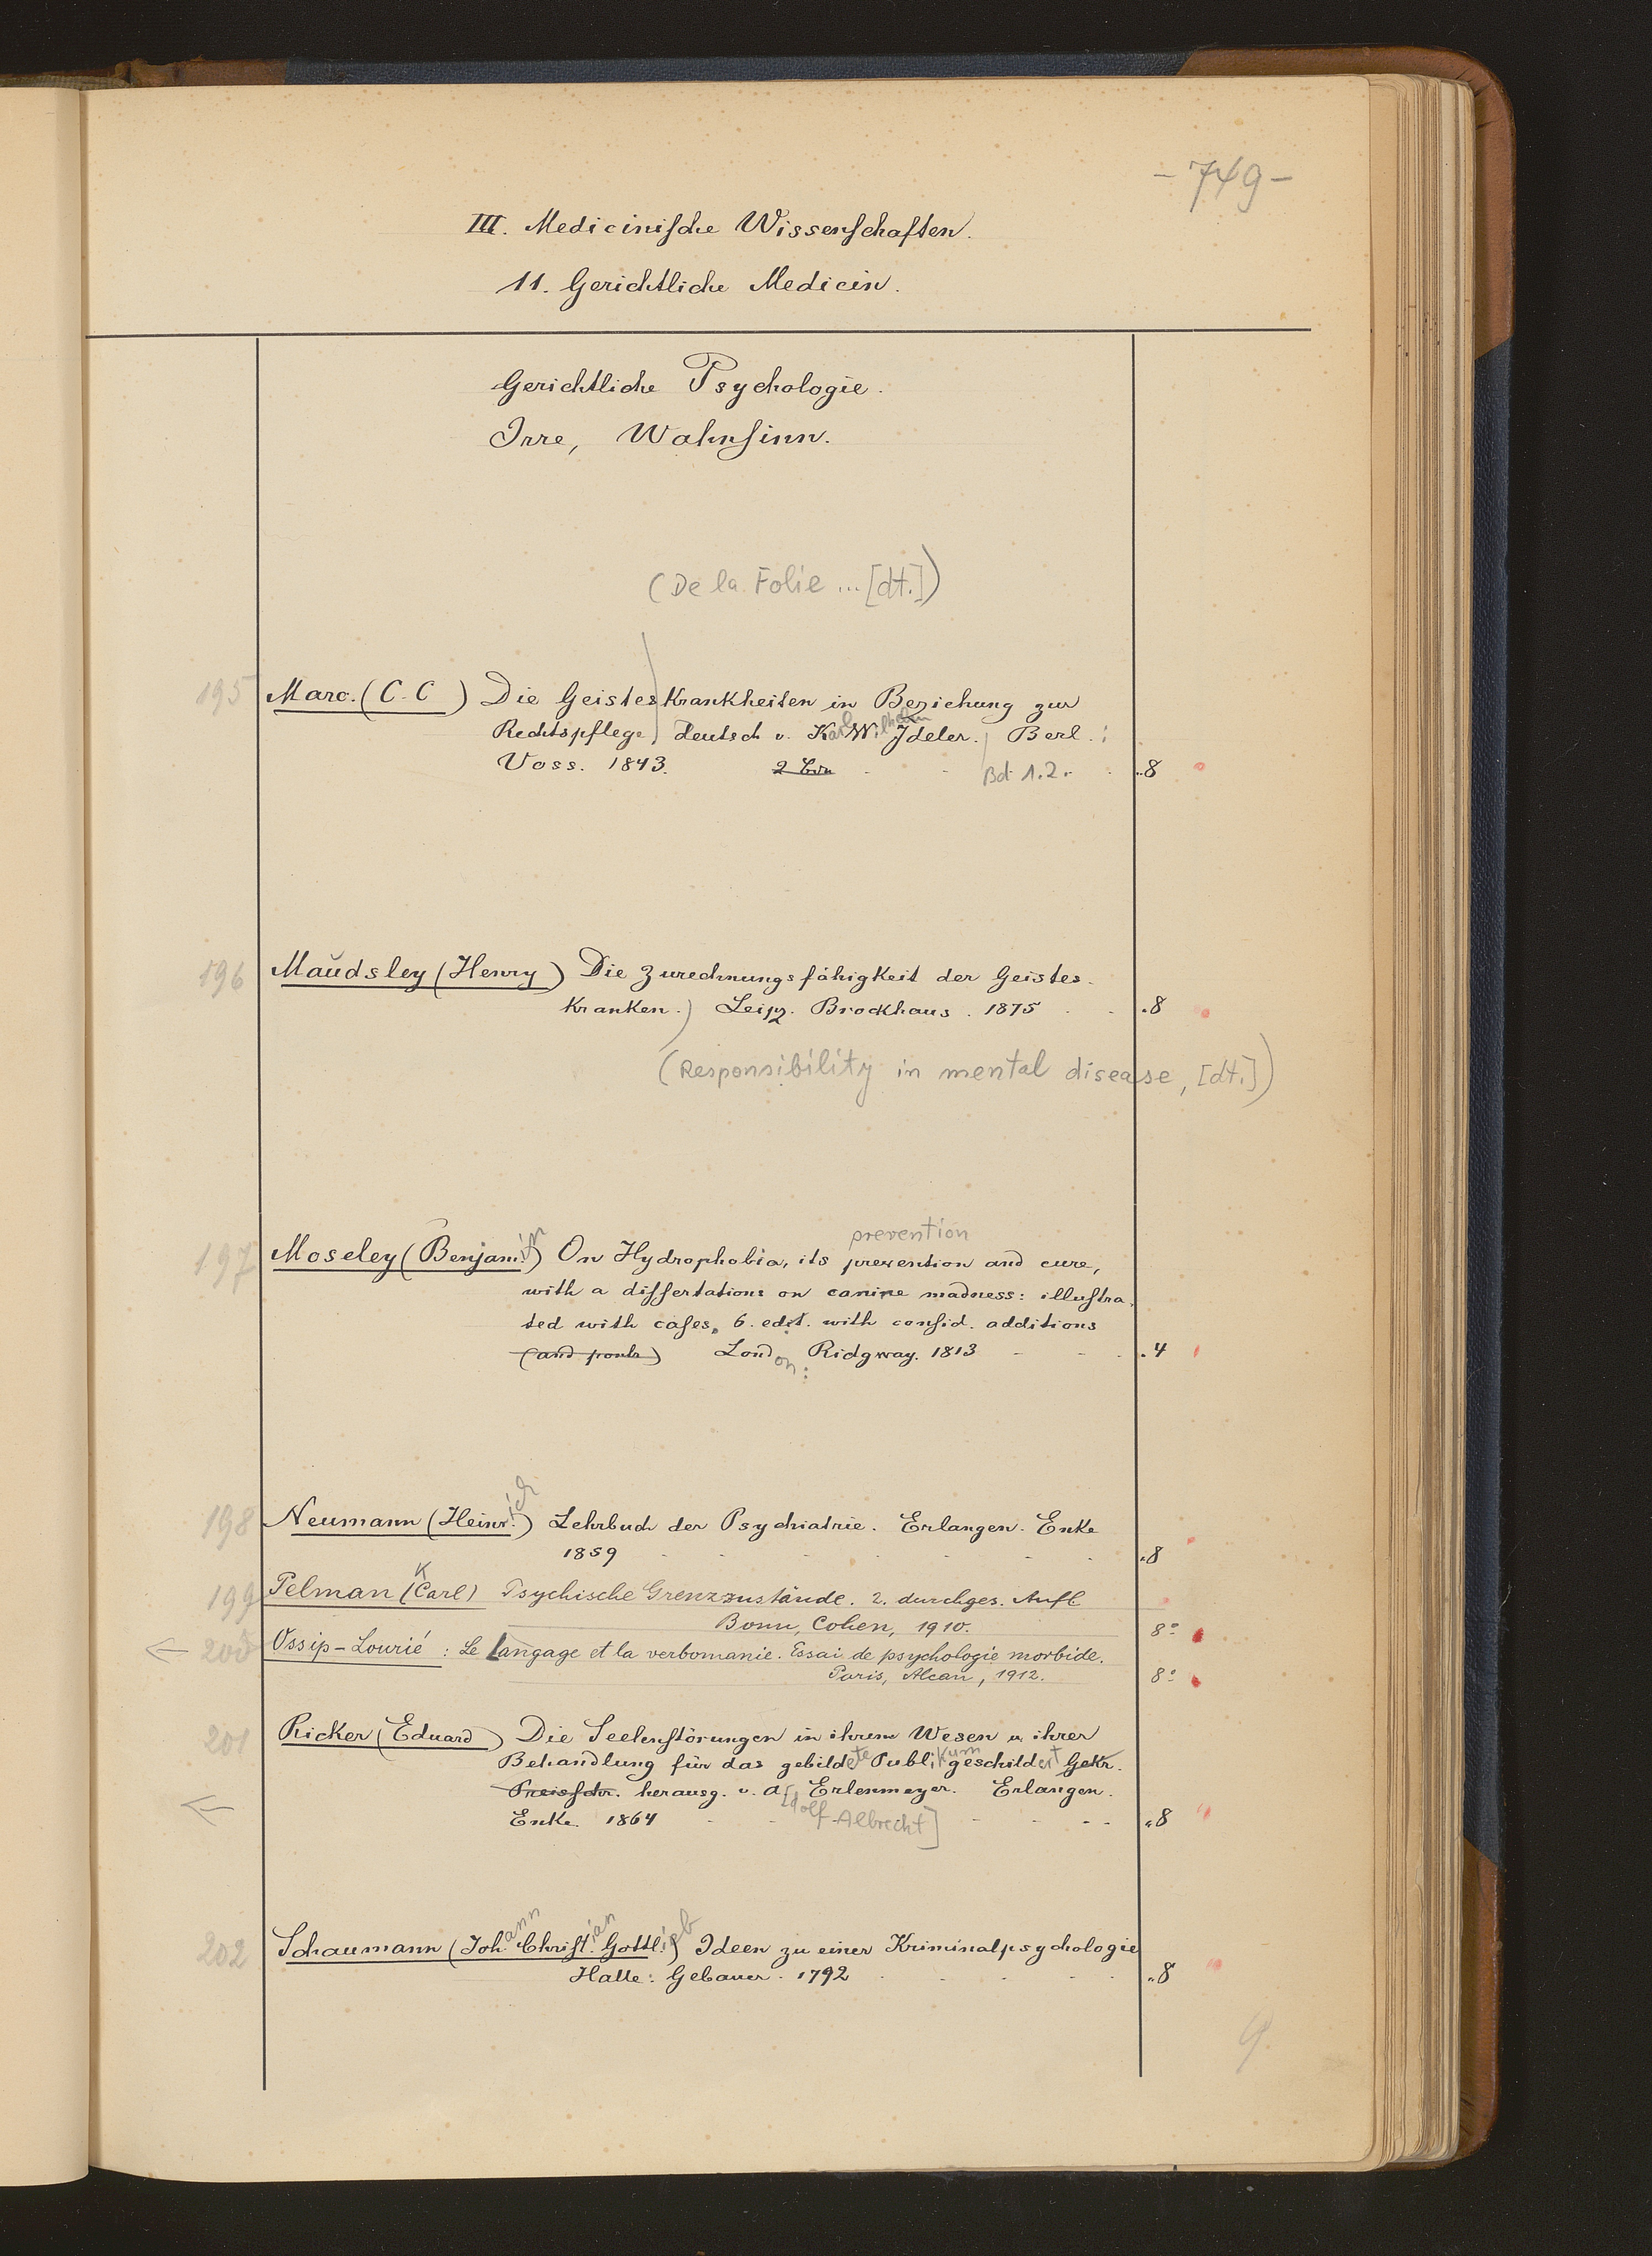 - 749 -
III. Medicinische Wissenschaften.
11. Gerichtliche Medicin.
Gerichtliche Psychologie.
Irre, Wahnsinn.
(De la Folie ... [dt.])
195 Marc. (C. C ) Die Geisteskrankheiten in Beziehung zur
Rechtspflege) deutsch v. Karl Wilhelm Ideler. Berl. :
Voss. 1843. 2 Bde Bd 1.2. 8
196 Maudsley (Henry) Die Zurechnungsfähigkeit der Geistes-
kranken.) Leipz. Brockhaus. 1875 8
(Responsibility in mental disease, [dt.])
prevention
197 Moseley (Benjamin) On Hydrophobia, its prevention and cure,
with a dissertations on canine madness: illustra-
ted with cases, 6. edit. with consid. additions
London: Ridgway. 1813 4
198 Neumann (Heinrich) Lehrbuch der Psychiatrie. Erlangen. Enke
1859 8
199 Pelman (Carl) Psychische Grenzzustände. 2. durchges. Aufl
K
Bonn, Cohen, 1910. 8°
200 Ossip-Lourié : Le Langage et la verbomanie. Essai de psychologie morbide.
Paris, Alcan, 1912. 8°
201 Ricker (Eduard) Die Seelenstörungen in ihrem Wesen u ihrer
Behandlung für das gebildete Publikum geschildert Gekr.
Preisschr. herausg. v. A[dolf Albrecht] Erlenmeyer. Erlangen.
Enke. 1864 8
202 Schaumann (Johann Christian Gottlieb) Ideen zu einer Kriminalpsychologie
Halle: Gebauer. 1792 8